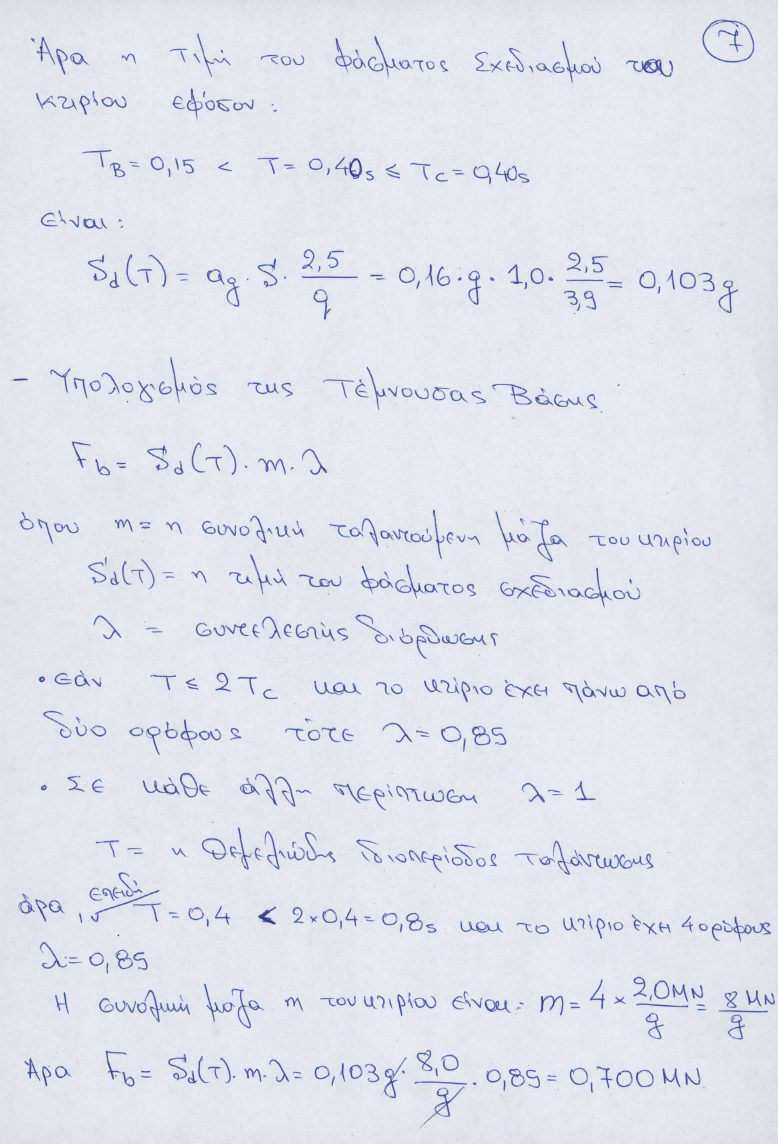 7
Άρα η τιμή του φάσματος σχεδιασμού του
κτιρίου εφόσον:
T_B = 0,15 < T = 0,40s ≤ T_C = 0,40s
είναι:
S_d(T) = a_g · S · 2,5/q = 0,16·g · 1,0 · 2,5/3,9 = 0,103g
- Υπολογισμός της Τέμνουσας Βάσης.
F_b = S_d(T) · m · λ
όπου m = η συνολική ταλαντούμενη μάζα του κτιρίου
S_d(T) = η τιμή του φάσματος σχεδιασμού
λ = συντελεστής διόρθωσης
• εάν T ≤ 2T_C και το κτίριο έχει πάνω από
δύο ορόφους τότε λ = 0,85
• Σε κάθε άλλη περίπτωση λ = 1
T = η θεμελιώδης ιδιοπερίοδος ταλάντωσης
άρα, επειδή T = 0,4 < 2×0,4 = 0,8s και το κτίριο έχει 4 ορόφους
λ = 0,85
Η συνολική μάζα m του κτιρίου είναι: m = 4 × 2,0MN/g = 8MN/g
Άρα F_b = S_d(T) · m · λ = 0,103g · 8,0/g · 0,85 = 0,700 MN.